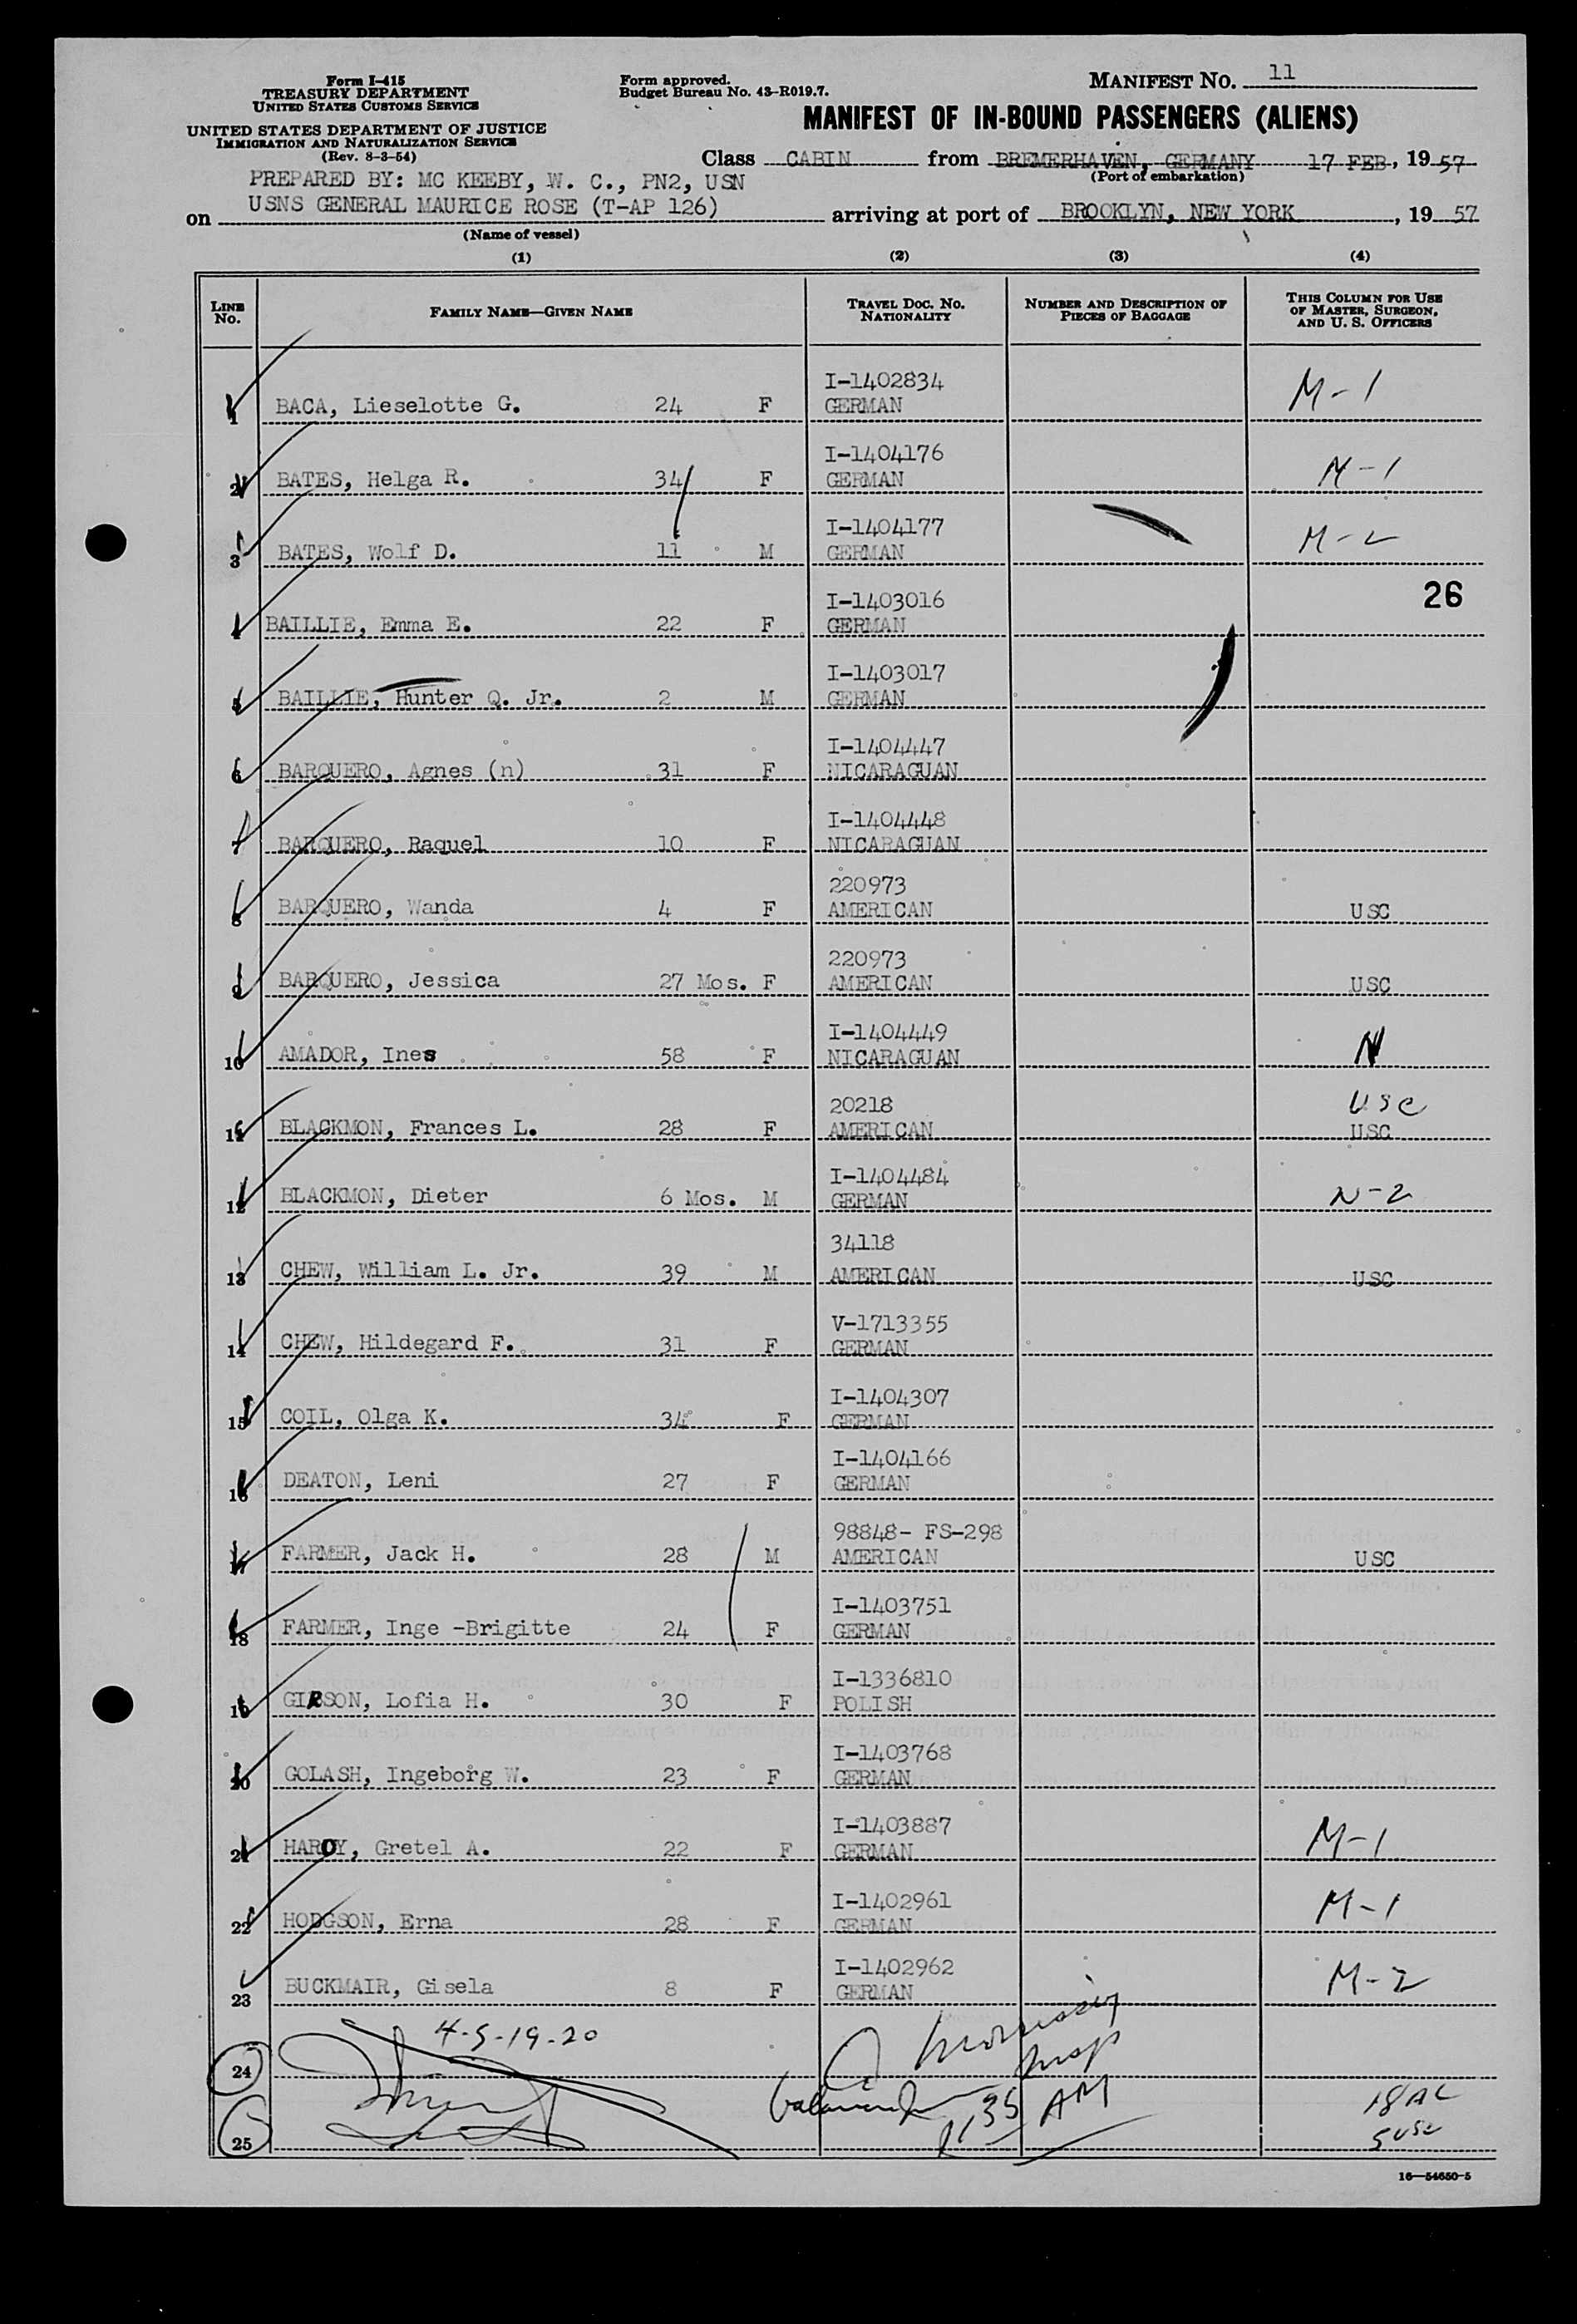 Form I-415
TREASURY DEPARTMENT
UNITED STATES CUSTOMS SERVICE
UNITED STATES DEPARTMENT OF JUSTICE
IMMIGRATION AND NATURALIZATION SERVICE
(Rev. 8-3-54)
Form approved.
Budget Bureau No. 43-R019.7.
MANIFEST NO. 11
MANIFEST OF IN-BOUND PASSENGERS (ALIENS)
Class CABIN from BREMERHAVEN, GERMANY 17 FEB, 1957
(Port of embarkation)
PREPARED BY: MC KEEBY, W. C., PN2, USN
on USNS GENERAL MAURICE ROSE (T-AP 126) arriving at port of BROOKLYN, NEW YORK, 1957
(Name of vessel)
(1) (2) (3) (4)
LINE NO. FAMILY NAME—GIVEN NAME TRAVEL DOC. NO. NATIONALITY NUMBER AND DESCRIPTION OF PIECES OF BAGGAGE THIS COLUMN FOR USE OF MASTER, SURGEON, AND U. S. OFFICERS
I-1402834
1 BACA, Lieselotte G. 24 F GERMAN M-1
I-1404176
2 BATES, Helga R. 34 F GERMAN M-1
I-1404177
3 BATES, Wolf D. 11 M GERMAN M-2
26
I-1403016
4 BAILLIE, Emma E. 22 F GERMAN
I-1403017
5 BAILLIE, Hunter Q. Jr. 2 M GERMAN
I-1404447
6 BARQUERO, Agnes (n) 31 F NICARAGUAN
I-1404448
7 BARQUERO, Raquel 10 F NICARAGUAN
220973
8 BARQUERO, Wanda 4 F AMERICAN USC
220973
9 BARQUERO, Jessica 27 Mos. F AMERICAN USC
I-1404449
10 AMADOR, Ines 58 F NICARAGUAN N
20218 USC
11 BLACKMON, Frances L. 28 F AMERICAN USC
I-1404484
12 BLACKMON, Dieter 6 Mos. M GERMAN N-2
34118
13 CHEW, William L. Jr. 39 M AMERICAN USC
V-1713355
14 CHEW, Hildegard F. 31 F GERMAN
I-1404307
15 COIL, Olga K. 34 F GERMAN
I-1404166
16 DEATON, Leni 27 F GERMAN
98848- FS-298
17 FARMER, Jack H. 28 M AMERICAN USC
I-1403751
18 FARMER, Inge -Brigitte 24 F GERMAN
I-1336810
19 GIBSON, Lofia H. 30 F POLISH
I-1403768
20 GOLASH, Ingeborg W. 23 F GERMAN
I-1403887
21 HARDY, Gretel A. 22 F GERMAN M-1
I-1402961
22 HODGSON, Erna 28 F GERMAN M-1
I-1402962
23 BUCKMAIR, Gisela 8 F GERMAN M-2
4-5-19-20
24
Insp
1135 AM
18 AL
5 USC
25
16—54650-5